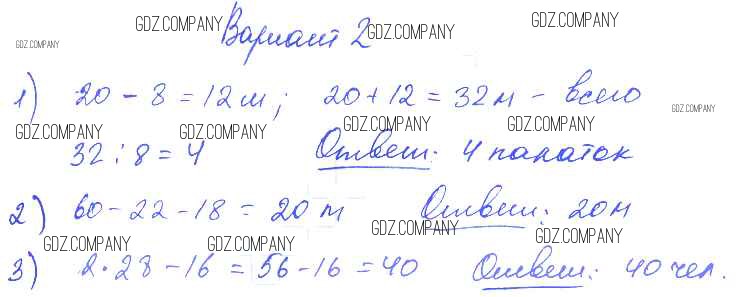 Вариант 2
GDZ.COMPANY GDZ.COMPANY GDZ.COMPANY GDZ.COMPANY
1) 20 - 8 = 12 м; 20 + 12 = 32 м - всего
GDZ.COMPANY
GDZ.COMPANY GDZ.COMPANY GDZ.COMPANY GDZ.COMPANY
32 : 8 = 4 Ответ: 4 палаток
2) 60 - 22 - 18 = 20 м Ответ: 20 м
GDZ.COMPANY GDZ.COMPANY GDZ.COMPANY GDZ.COMPANY
3) 2 · 28 - 16 = 56 - 16 = 40 Ответ: 40 чел.